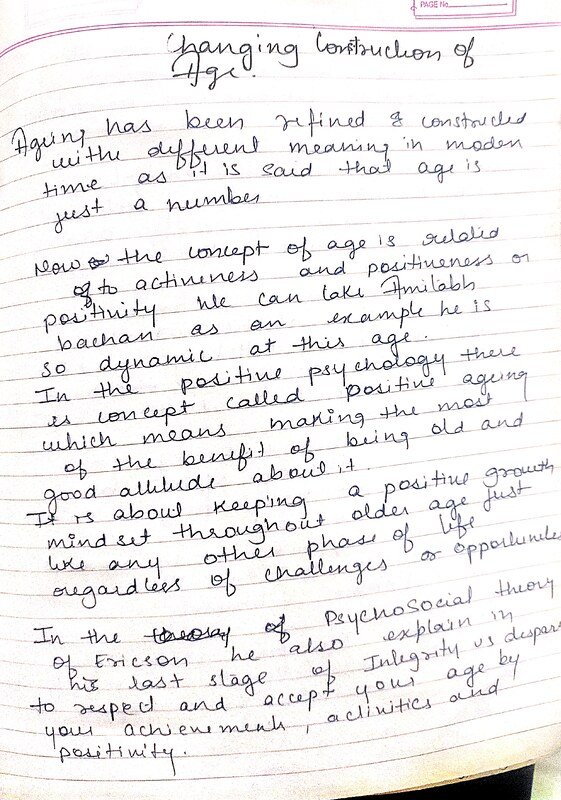 PAGE No
Changing Construction of
Age.
Ageing has been refined & constructed
withe different meaning in moden
time as it is said that age is
just a number
Now the concept of age is related
to activeness and positiveness or
positivity we can take Amitabh
bachan as an example he is
so dynamic at this age.
In the positive psychology there
is concept called positive ageing
which means making the most
of the benefit of being old and
good attitude about it.
It is about keeping a positive growth
mindset throughout older age just
like any other phase of life
regardless of challenges or opportunities
In the theory of Psychosocial theory
of Ericson he also explain in
his last stage of Integrity vs despare
to respect and accept your age by
your achievements, activities and
positivity.